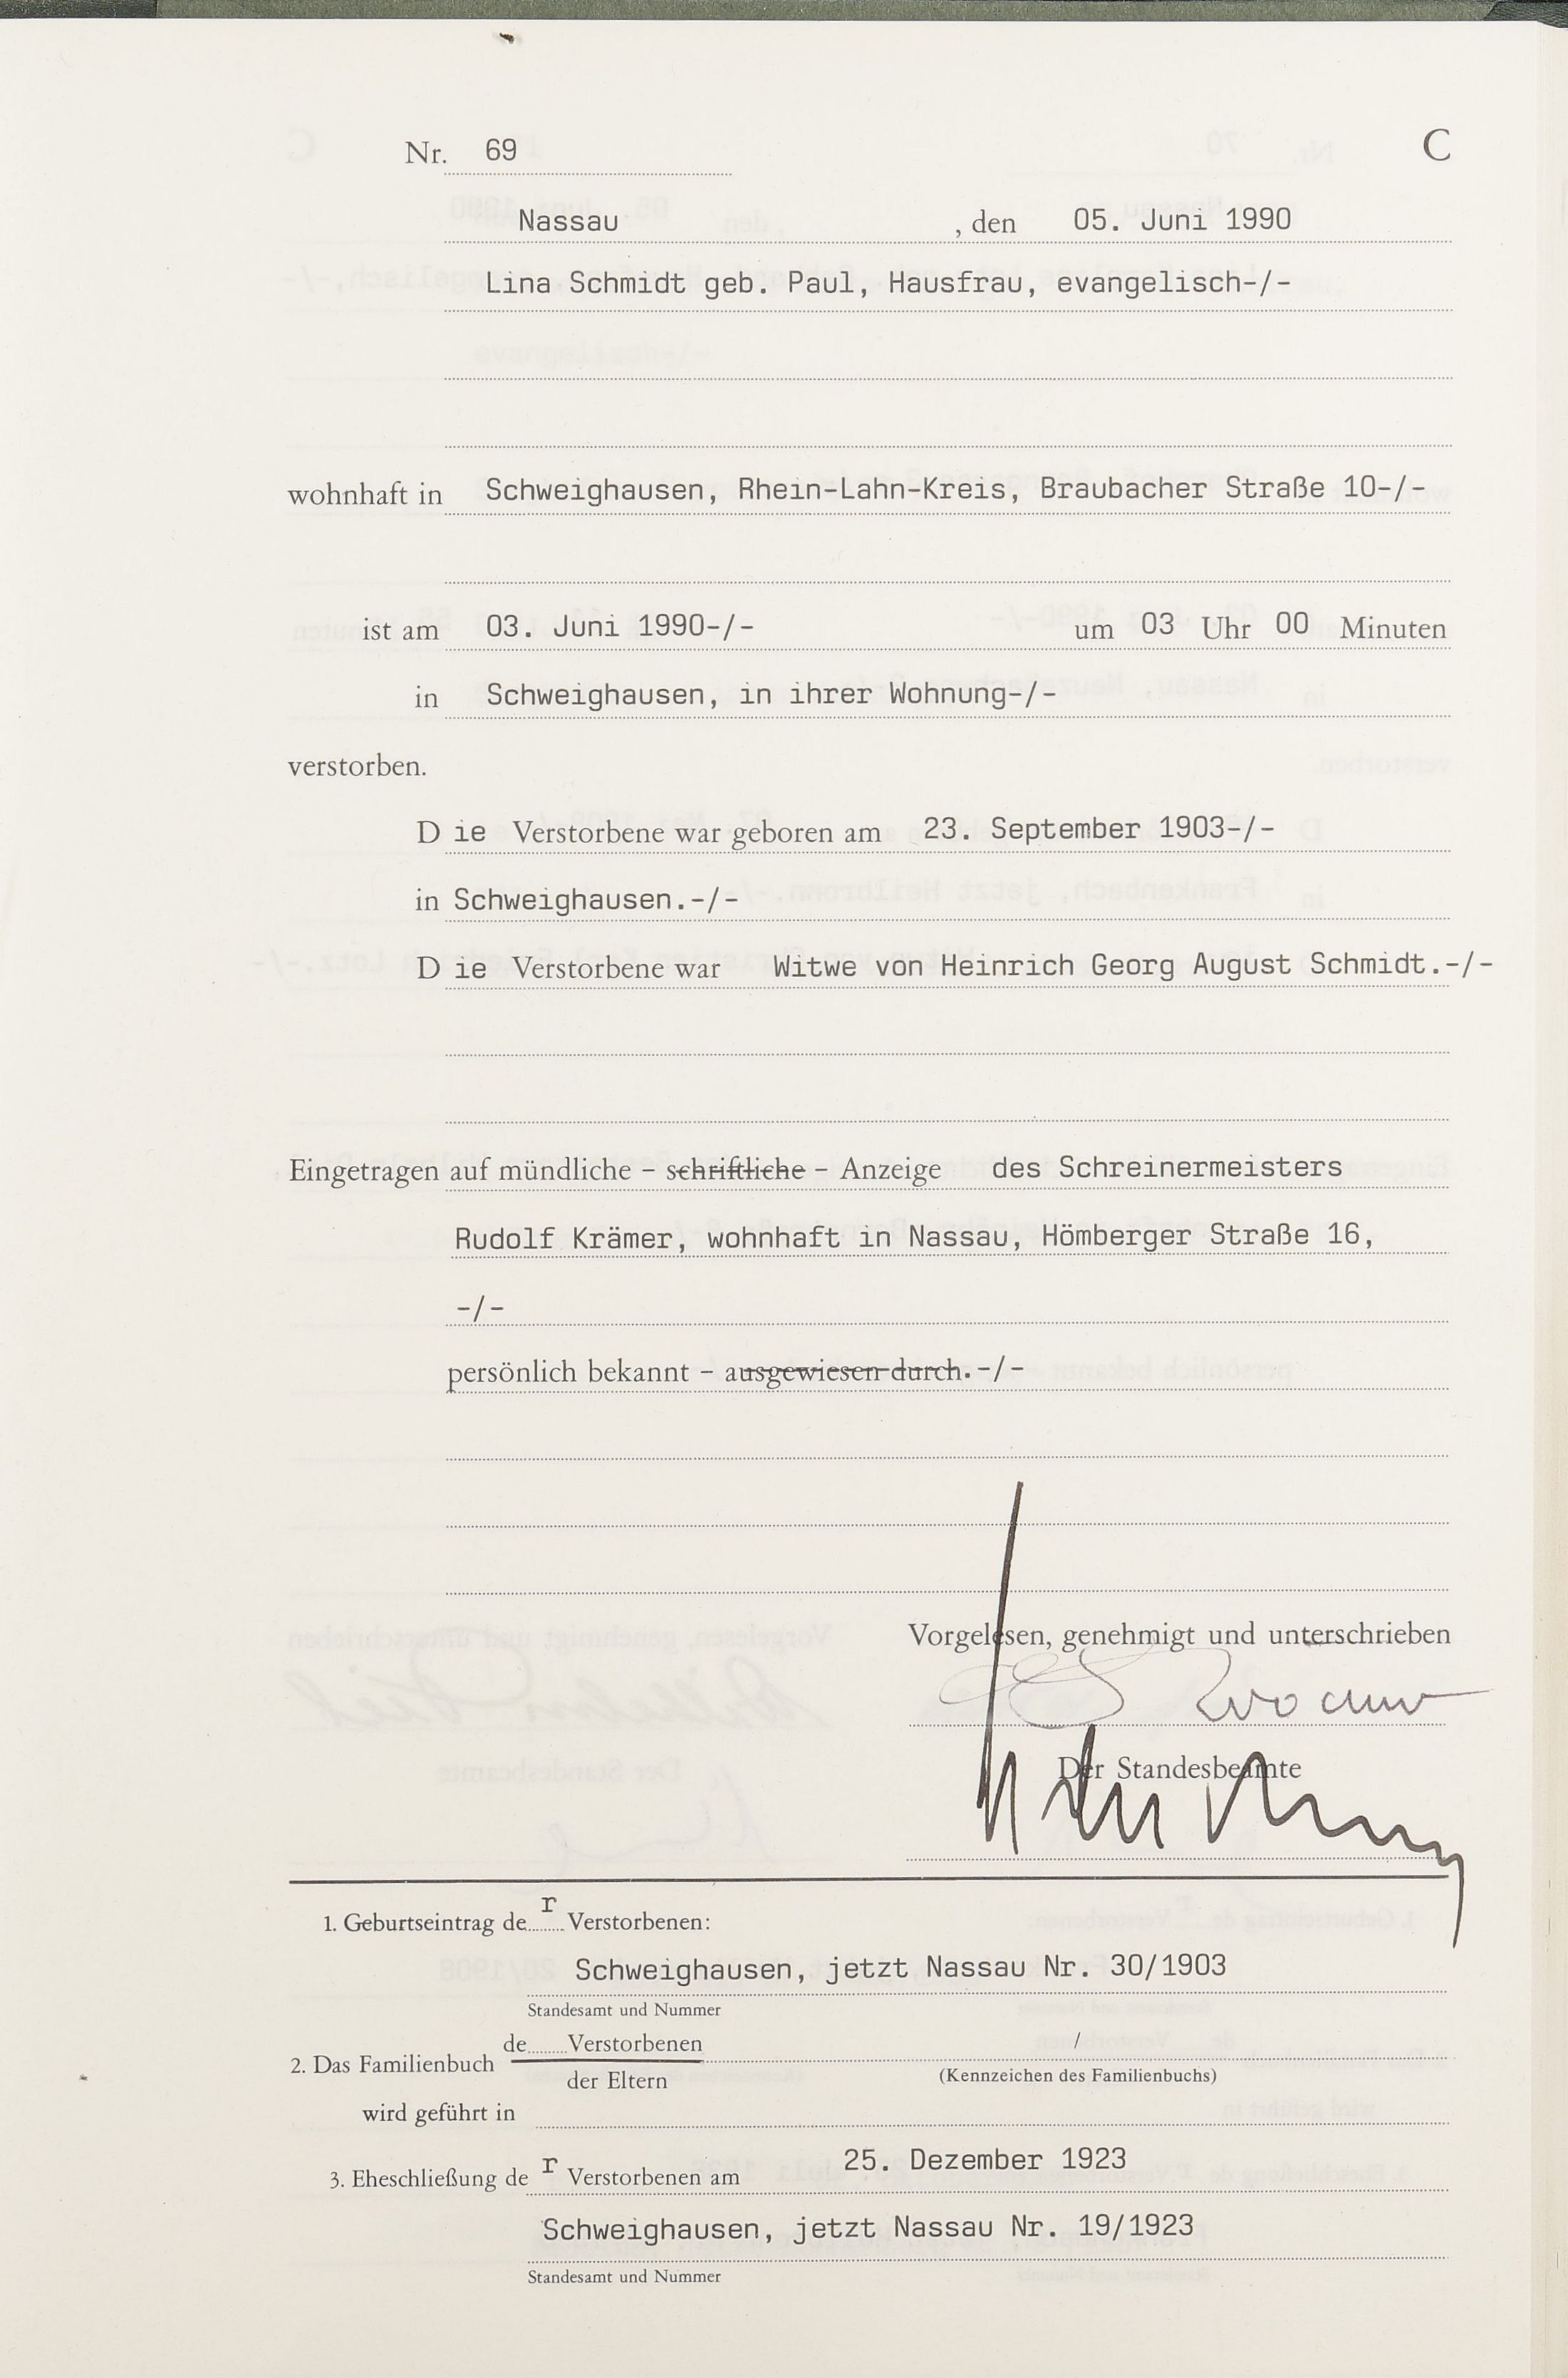 Nr. 69 C
Nassau , den 05. Juni 1990
Lina Schmidt geb. Paul, Hausfrau, evangelisch-/-
wohnhaft in Schweighausen, Rhein-Lahn-Kreis, Braubacher Straße 10-/-
ist am 03. Juni 1990-/- um 03 Uhr 00 Minuten
in Schweighausen, in ihrer Wohnung-/-
verstorben.
D ie Verstorbene war geboren am 23. September 1903-/-
in Schweighausen.-/-
D ie Verstorbene war Witwe von Heinrich Georg August Schmidt.-/-
Eingetragen auf mündliche – schriftliche – Anzeige des Schreinermeisters
Rudolf Krämer, wohnhaft in Nassau, Hömberger Straße 16,
-/-
persönlich bekannt – ausgewiesen durch. -/-
Vorgelesen, genehmigt und unterschrieben
Der Standesbeamte
1. Geburtseintrag de r Verstorbenen:
Schweighausen, jetzt Nassau Nr. 30/1903
Standesamt und Nummer
de........Verstorbenen /
2. Das Familienbuch
der Eltern (Kennzeichen des Familienbuchs)
wird geführt in
25. Dezember 1923
3. Eheschließung de r Verstorbenen am
Schweighausen, jetzt Nassau Nr. 19/1923
Standesamt und Nummer